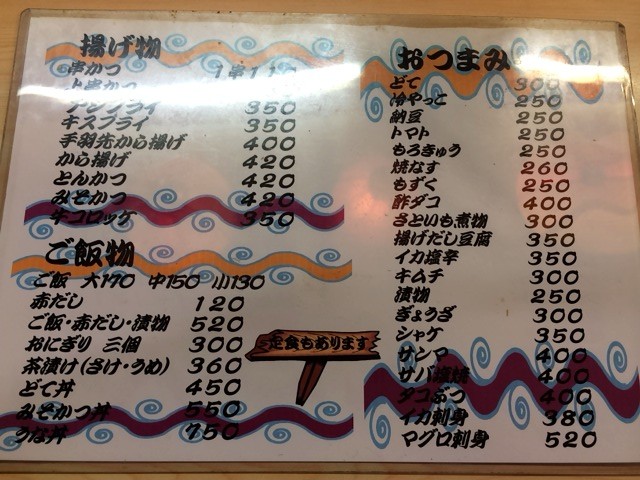 揚げ物
串かつ 1串110
上串かつ
アジフライ 350
キスフライ 350
手羽先から揚げ 400
から揚げ 420
とんかつ 420
みそかつ 420
牛コロッケ 350
ご飯物
ご飯 大170 中150 小130
赤だし 120
ご飯・赤だし・漬物 520
おにぎり 三個 300
茶漬け(さけ・うめ) 360
どて丼 450
みそかつ丼 550
うな丼 750
定食もあります
おつまみ
どて 300
冷やっこ 250
納豆 250
トマト 250
もろきゅう 250
焼なす 260
もずく 250
酢ダコ 400
さといも煮物 300
揚げだし豆腐 350
イカ塩辛 350
キムチ 300
漬物 250
ぎょうざ 300
シャケ 350
サンマ 400
サバ塩焼 400
タコぶつ 400
イカ刺身 380
マグロ刺身 520